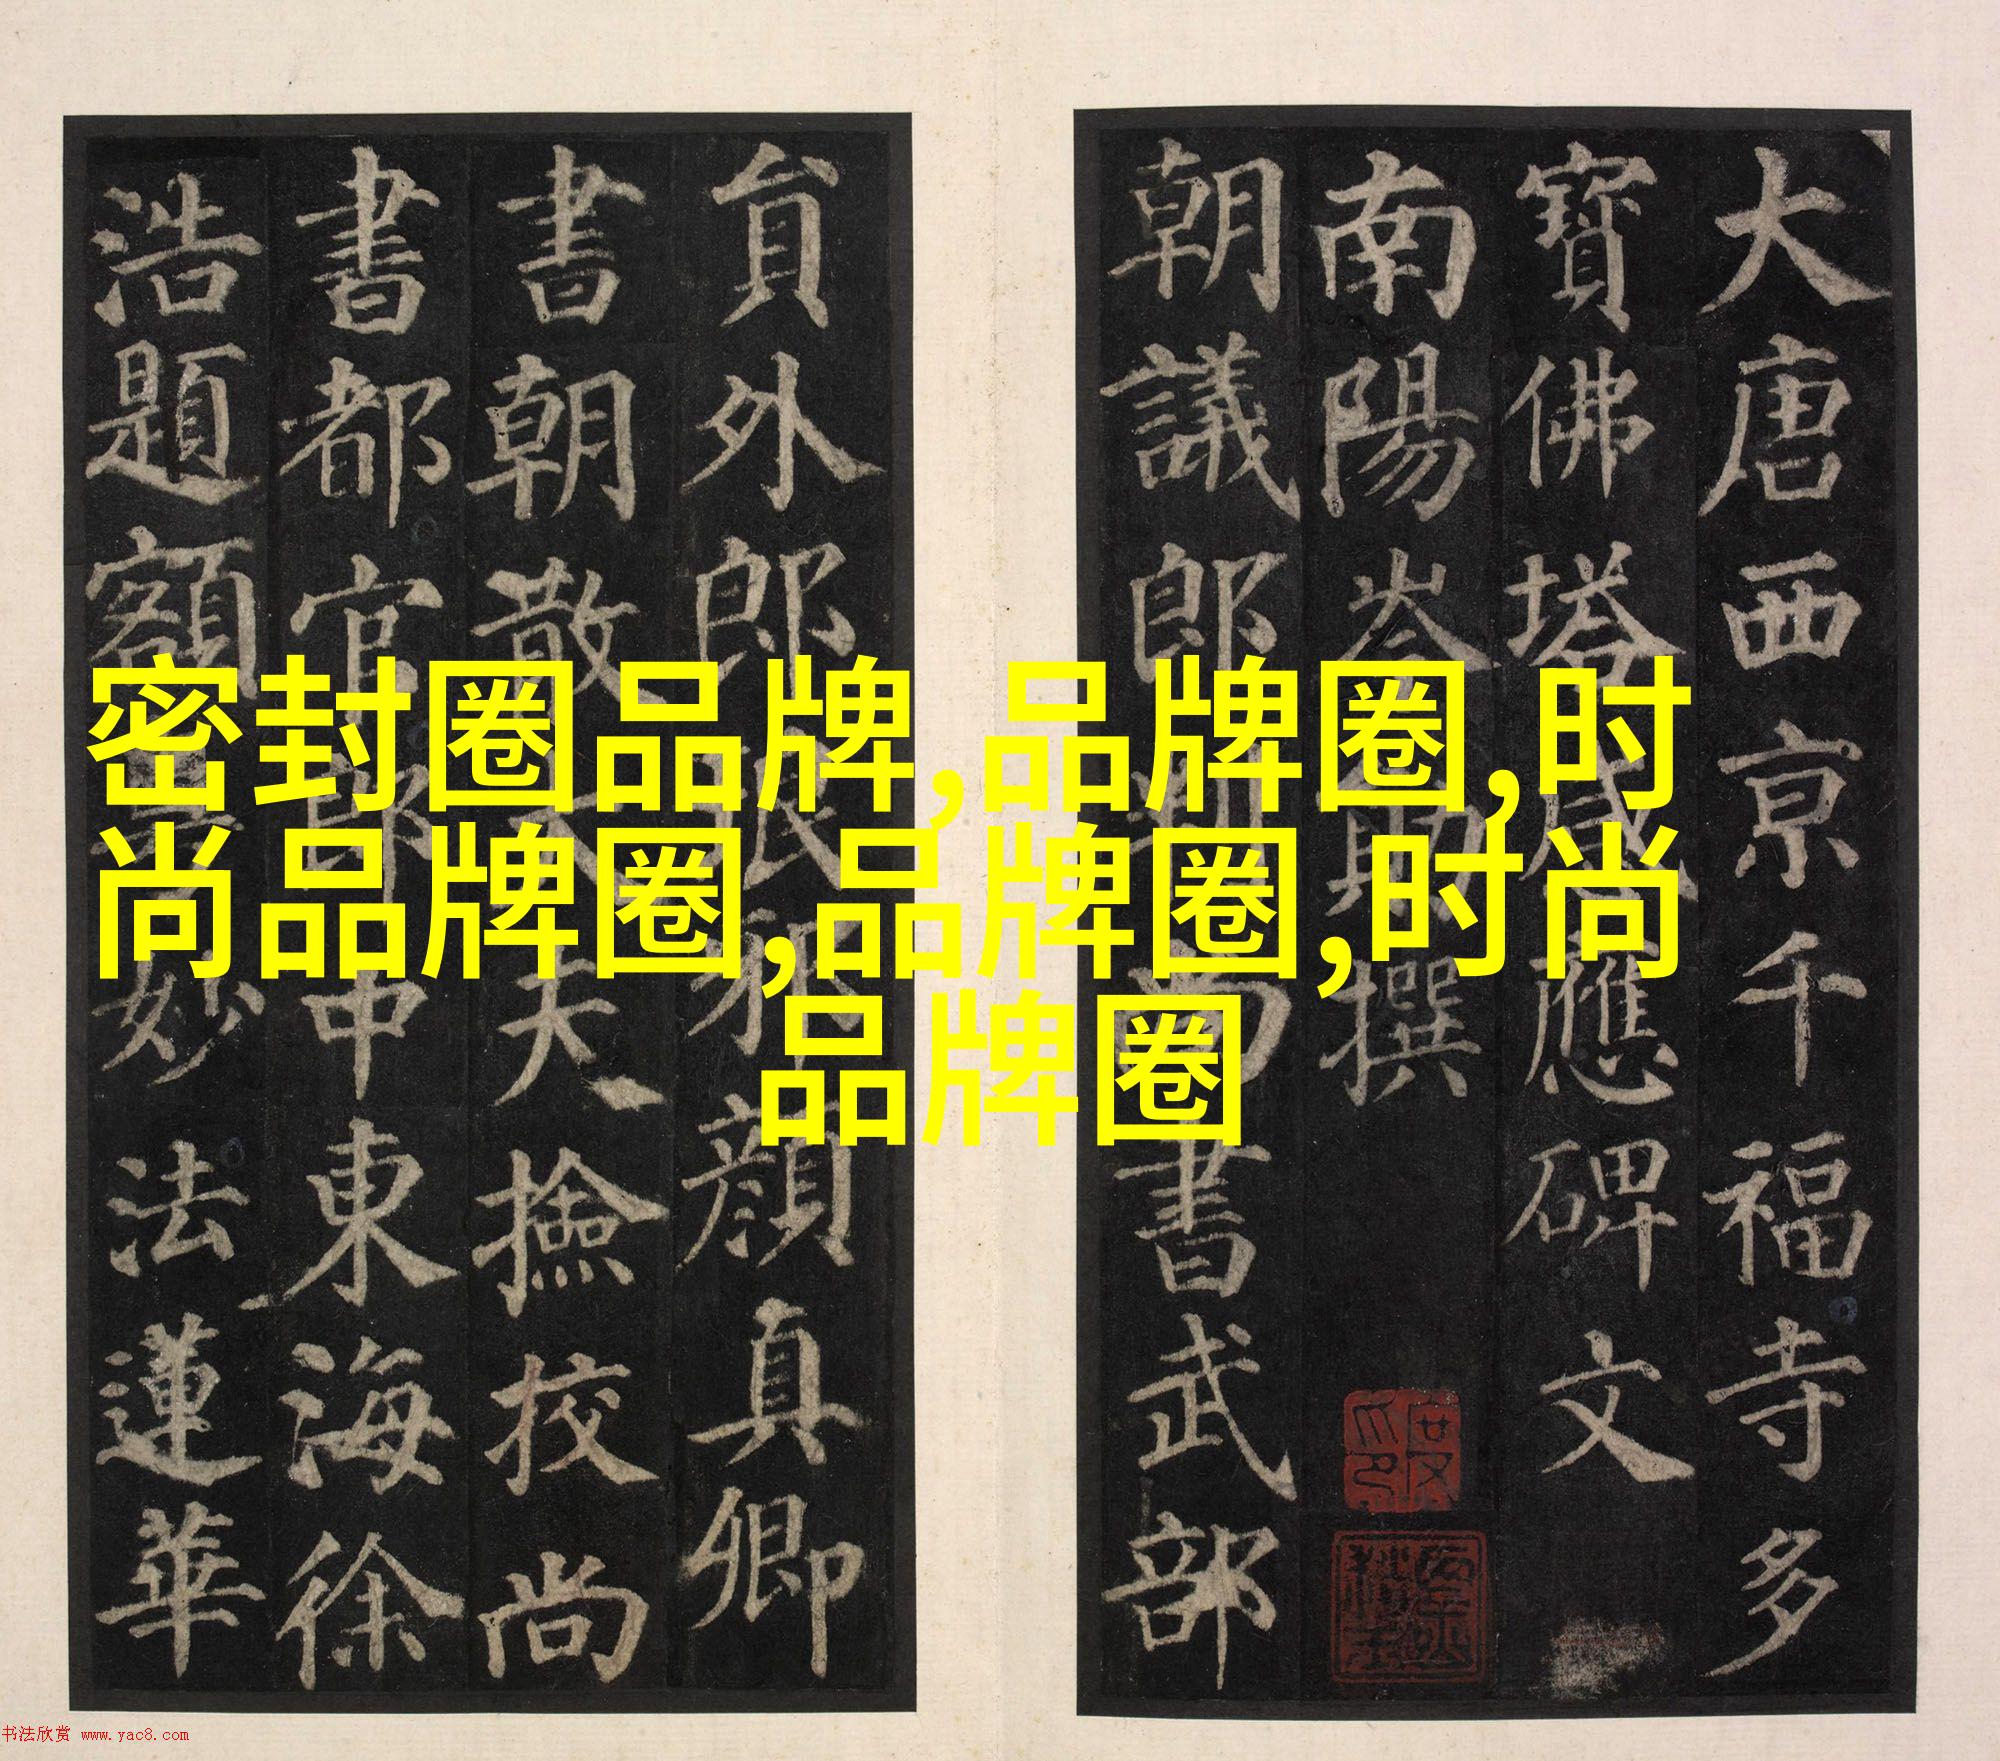 大唐西京千福寺多
寶佛塔感應碑文
南陽岑勛撰
朝議郎判尚書武部
員外郎琅邪顏真卿
書朝散大夫撿校尚
書都官郎中東海徐
浩題額
妙法蓮華
密封圈品牌,品牌圈,时
尚品牌圈,品牌圈,时尚
品牌圈
书法欣赏 www.yac8.com